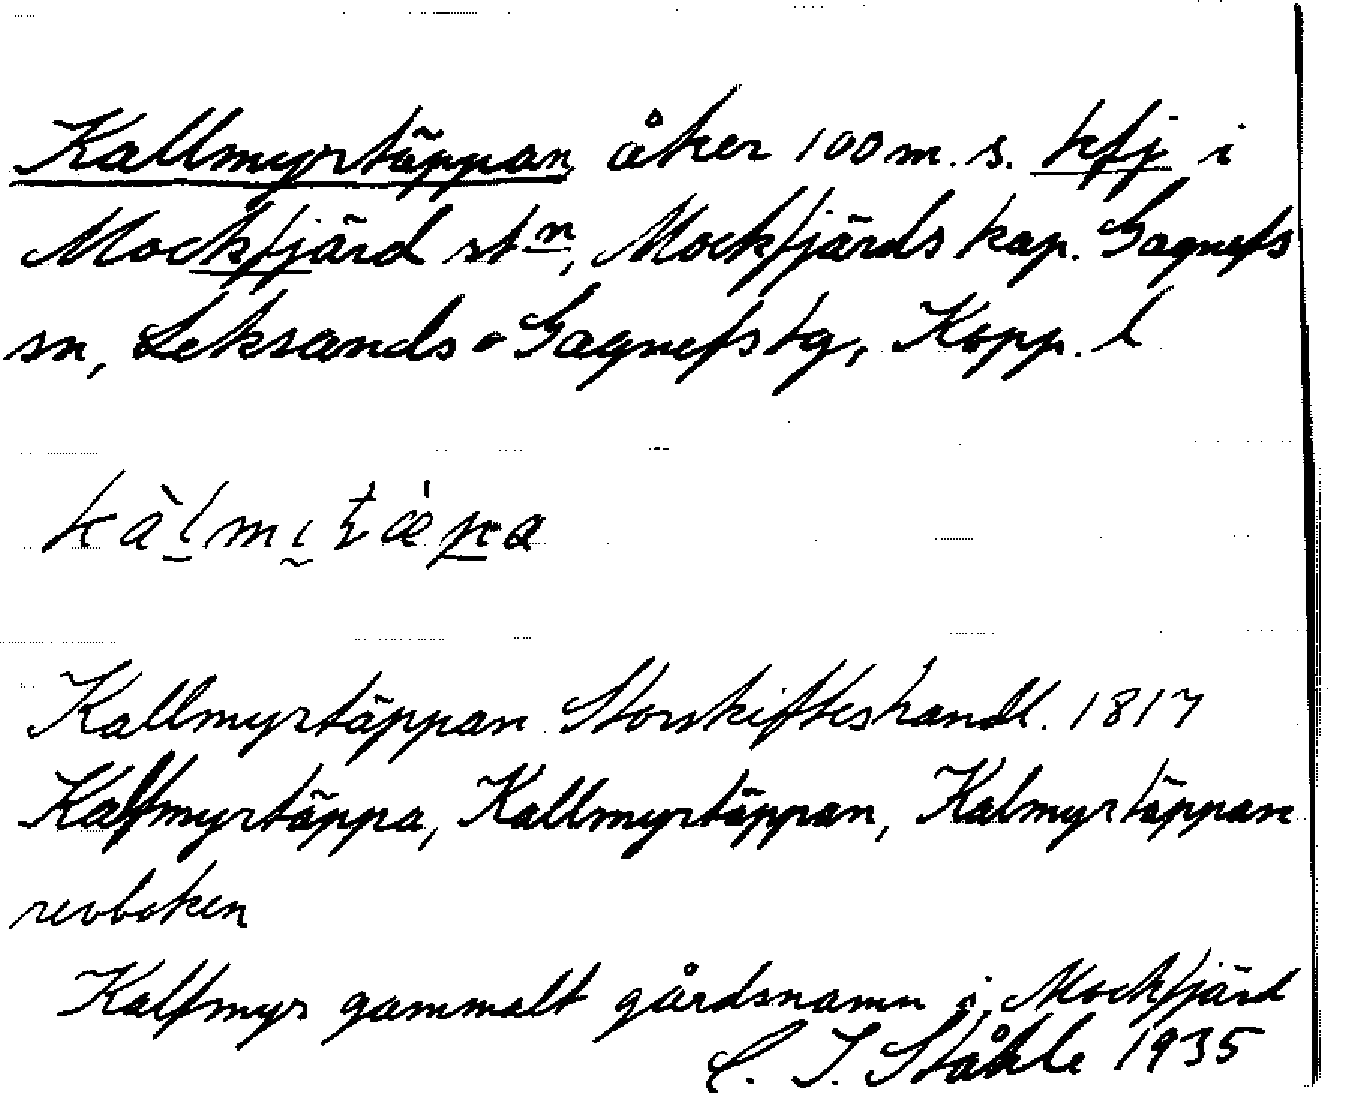 Kallmyrtäppan, åker 100 m. s. kfj i
Mockfjärd stn, Mockfjärds kap. Gagnefs
sn, Leksands o Gagnefs tg, Kopp. l
Kallmyrtäppan Storskifteshandl. 1817
Kalfmyrtäppa, Kallmyrtäppan, Kalmyrtäppan
revboken
Kalfmyr gammalt gårdsnamn i Mockfjärd
C. I. Ståhle 1935